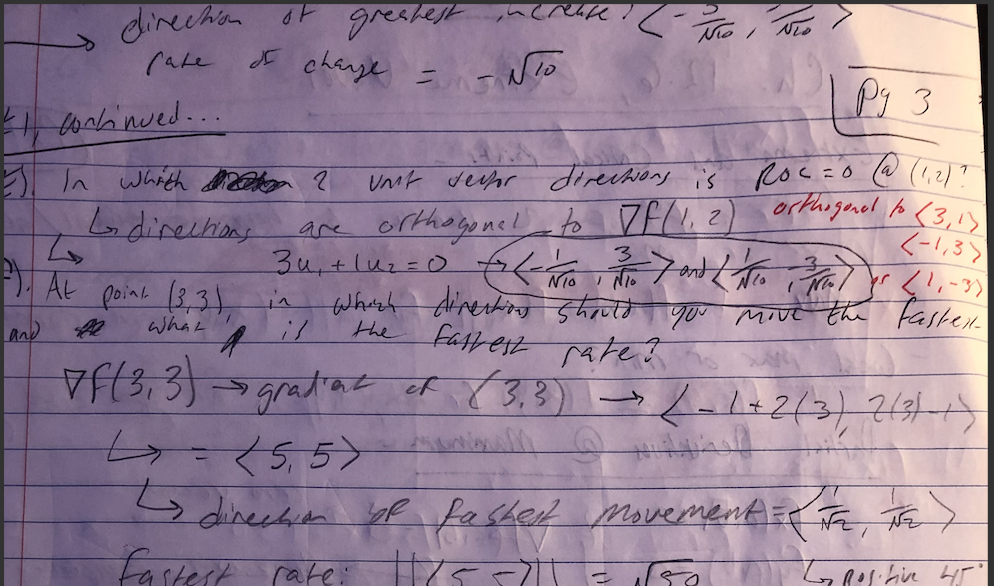 direction of greatest increase: ⟨-3/√10, 1/√10⟩
→ rate of change = -√10
Pg 3
#1, continued...
In which 2 unit vector directions is ROC = 0 @ (1,2)?
↳ directions are orthogonal to ∇f(1, 2) orthogonal to ⟨3,1⟩
⟨-1,3⟩
↳ 3u₁ + 1u₂ = 0 → ⟨-1/√10, 3/√10⟩ and ⟨1/√10, -3/√10⟩ or ⟨1,-3⟩
At point (3,3), in which direction should you move the fastest
and what is the fastest rate?
∇f(3,3) → gradient of (3,3) → ⟨-1+2(3), 2(3)-1⟩
↳ = ⟨5, 5⟩
↳ direction of fastest movement = ⟨1/√2, 1/√2⟩
fastest rate: ||⟨5, 5⟩|| = √50 ↳ positive 45°